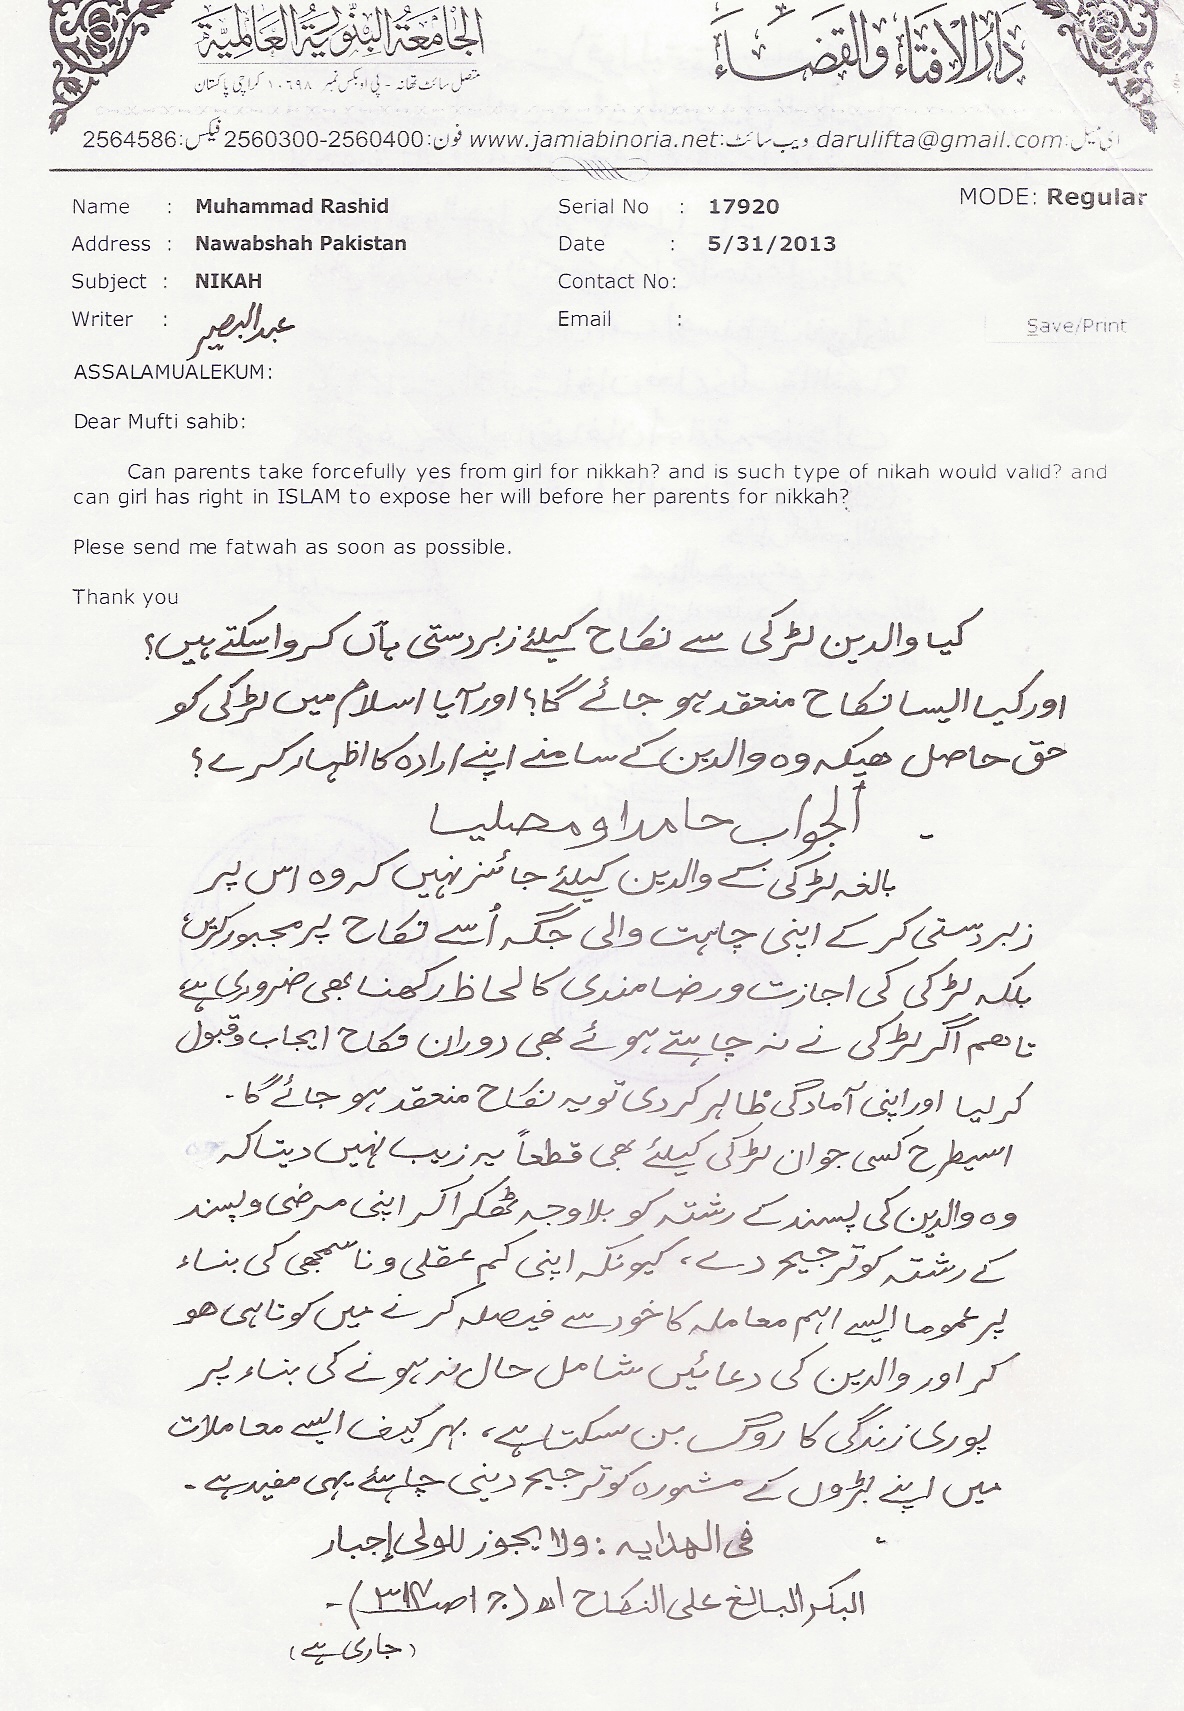 الجامعة البنورية العالمية
دار الافتاء والقضاء
متصل سائٹ تھانہ - پی او بکس نمبر ۱۰۶۹۸ کراچی پاکستان
ای میل:darulifta@gmail.com ویب سائٹ:www.jamiabinoria.net فون:2560300-2560400 فیکس:2564586
MODE: Regular
Name : Muhammad Rashid Serial No : 17920
Address : Nawabshah Pakistan Date : 5/31/2013
Subject : NIKAH Contact No:
Writer : عبدالبصیر Email :
Save/Print
ASSALAMUALEKUM:
Dear Mufti sahib:
Can parents take forcefully yes from girl for nikkah? and is such type of nikah would valid? and
can girl has right in ISLAM to expose her will before her parents for nikkah?
Plese send me fatwah as soon as possible.
Thank you
کیا والدین لڑکی سے نکاح کیلئے زبردستی ہاں کرواسکتے ہیں؟
اور کیا ایسا نکاح منعقد ہو جائے گا؟ اور آیا اسلام میں لڑکی کو
حق حاصل ھیکہ وہ والدین کے سامنے اپنے ارادہ کا اظہار کرے؟
الجواب حامدا و مصلیا
بالغہ لڑکی کے والدین کیلئے جائز نہیں کہ وہ اس پر
زبردستی کر کے اپنی چاہت والی جگہ اُسے نکاح پر مجبور کریں،
بلکہ لڑکی کی اجازت و رضامندی کا لحاظ رکھنا بھی ضروری ہے،
تاھم اگر لڑکی نے نہ چاہتے ہوئے بھی دوران نکاح ایجاب و قبول
کر لیا اور اپنی آمادگی ظاہر کر دی تو یہ نکاح منعقد ہو جائے گا۔
اسیطرح کسی جوان لڑکی کیلئے بھی قطعاً یہ زیب نہیں دیتا کہ
وہ والدین کی پسند کے رشتہ کو بلاوجہ ٹھکرا کر اپنی مرضی و پسند
کے رشتہ کو ترجیح دے، کیونکہ اپنی کم عقلی و ناسمجھی کی بناء
پر عموما ایسے اہم معاملہ کا خود سے فیصلہ کرنے میں کوتاہی ھو
کر اور والدین کی دعائیں شامل حال نہ ہونے کی بناء پر
پوری زندگی کا روگ بن سکتا ہے، بہر کیف ایسے معاملات
میں اپنے بڑوں کے مشورہ کو ترجیح دینی چاہئے یہی مفید ہے۔
فی الھدایہ: ولا یجوز للولی إجبار
البکر البالغ علی النکاح اھ (ج ۱ ص ۳۱۴)۔
(جاری ہے)